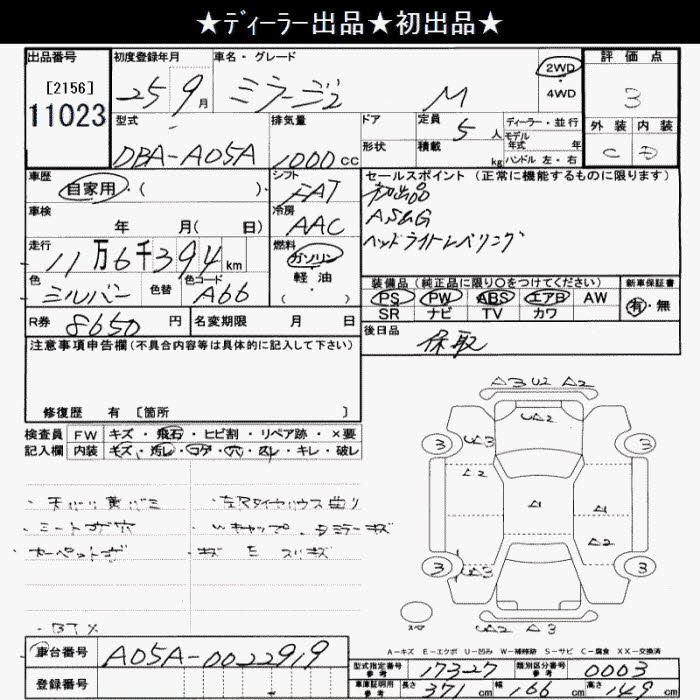 ★ディーラー出品★初出品★
出品番号 初度登録年月 車名・グレード 評価点
[2156]
11023
25 9月 ミラージュ M 2WD 4WD 3
型式 排気量 ドア 定員 5人 ディーラー・並行 外装 内装
DBA-A05A 1000cc 形状 積載 kg モデル年式 年 ハンドル 左・右 C D
車歴 シフト セールスポイント(正常に機能するものに限ります)
自家用・( )・ FAT 初出品
車検 冷房 AS&G
年 月( 日) AAC ヘッドライトレベリング
走行 燃料
11万6千394km ガソリン
色 色替 色コード 軽油
シルバー A66 ( )
装備品(純正品に限り○をつけてください) 新車保証書
PS PW ABS エアB AW 有・無
SR ナビ TV カワ
R券 8650円 名変期限 月 日
後日品 保取
注意事項申告欄(不具合内容等は具体的に記入して下さい)
修復歴 有 [箇所 ]
検査員 FW キズ・飛石・ヒビ割・リペア跡・×要
記入欄 内装 キズ・汚レ・コゲ・穴・凹レ・キレ・破レ
・シートコゲ穴
・カーペットコゲ
・BTX
・左Rタイヤハウス曲り
・Wキャップ、ミラーキズ
A3 U2 A2
UA2
3 UA3 3
A2
A1 A1
A2
3 UA3 3
UA2 A3
スペア
A-キズ E-エクボ U-凹み W-補修跡 S-サビ C-腐食 XX-交換済
車台番号 A05A-0022919
登録番号
型式指定番号 参考 17327 類別区分番号 参考 0003
車庫証明用 参考 長さ 371cm 幅 166cm 高さ 149cm